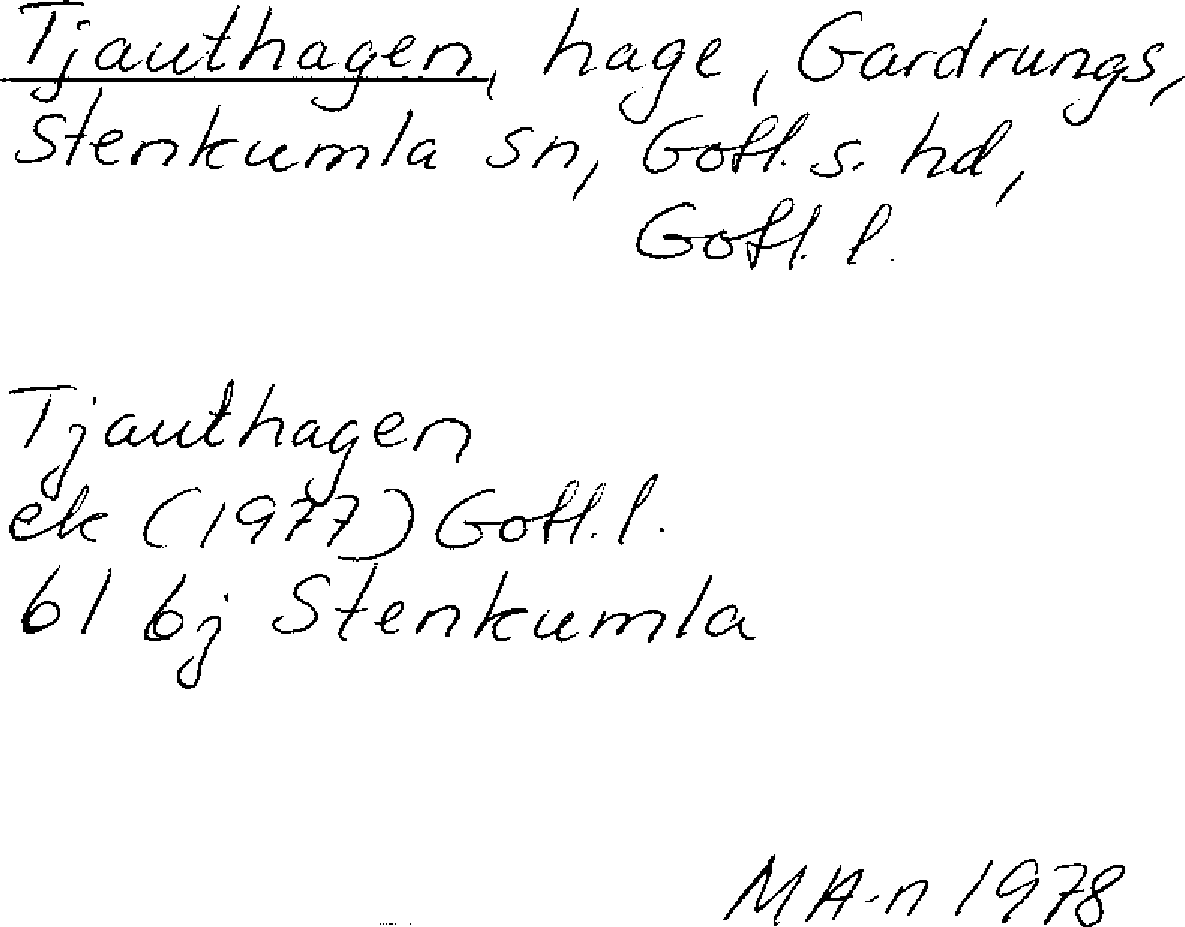 Tjauthagen, hage, Gardrungs,
Stenkumla sn, Gotl. s. hd,
Gotl. l.
Tjauthagen
ek (1977) Gotl. l.
bl bj Stenkumla
MA-n 1978